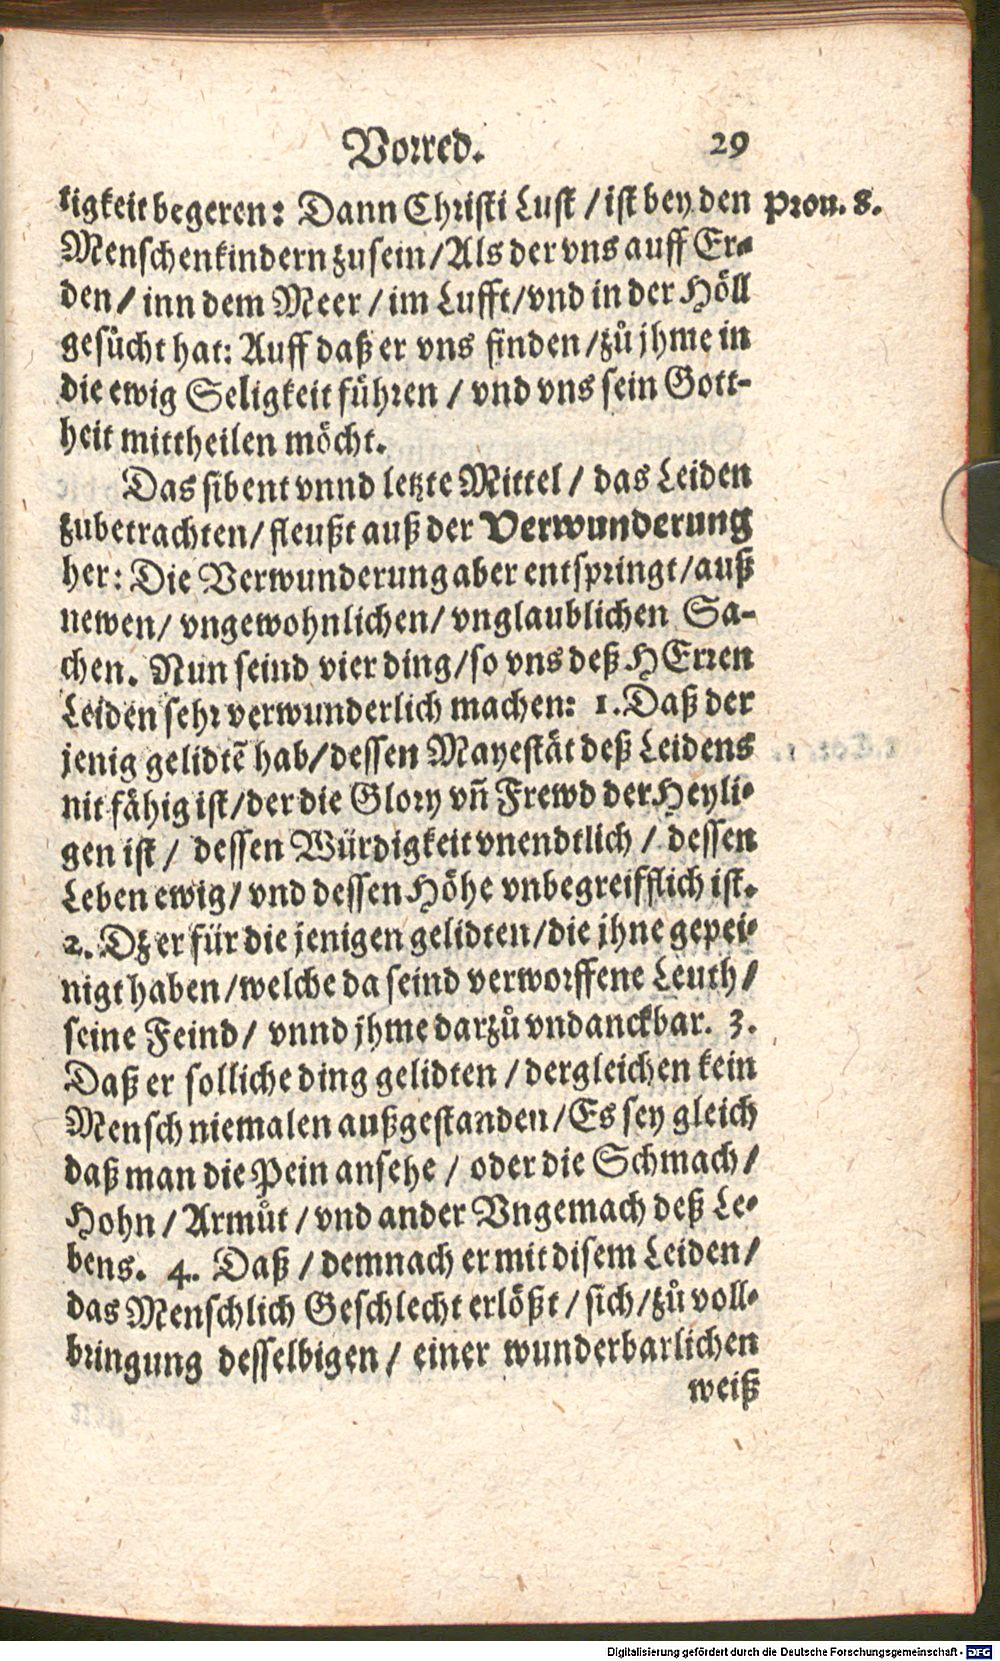 Vorred. 29
tigkeit begeren: Dann Christi Lust / ist bey den Prou. 8.
Menschenkindern zu sein / Als der vns auff Er-
den / inn dem Meer / im Lufft / vnd in der Höll
gesůcht hat: Auff daß er vns finden / zů jhme in
die ewig Seligkeit führen / vnd vns sein Gott-
heit mittheilen möcht.
Das sibent vnnd letzte Mittel / das Leiden
zubetrachten / fleußt auß der Verwunderung
her: Die Verwunderung aber entspringt / auß
newen / vngewohnlichen / vnglaublichen Sa-
chen. Nun seind vier ding / so vns deß HErren
Leiden sehr verwunderlich machen: 1. Daß der
jenig gelidtē hab / dessen Mayestät deß Leidens
nit fähig ist / der die Glory vñ Frewd der Heyli-
gen ist / dessen Würdigkeit vnendtlich / dessen
Leben ewig / vnd dessen Höhe vnbegreifflich ist.
2. Dz er für die jenigen gelidten / die jhne gepei-
nigt haben / welche da seind verworffene Leuth /
seine Feind / vnnd jhme darzů vndanckbar. 3.
Daß er solliche ding gelidten / dergleichen kein
Mensch niemalen außgestanden / Es sey gleich
daß man die Pein ansehe / oder die Schmach /
Hohn / Armůt / vnd ander Vngemach deß Le-
bens. 4. Daß / demnach er mit disem Leiden /
das Menschlich Geschlecht erlößt / sich / zů voll-
bringung desselbigen / einer wunderbarlichen
weiß
Digitalisierung gefördert durch die Deutsche Forschungsgemeinschaft - DFG